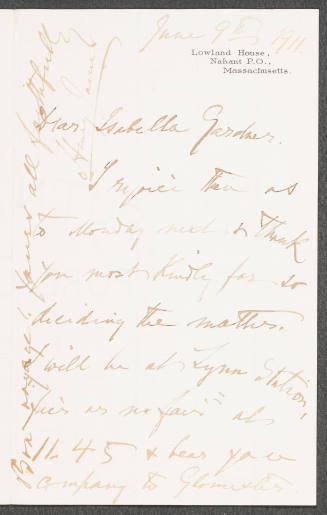 June 9th 1911.
Lowland House,
Nahant P.O.,
Massachusetts.
Dear Isabella Gardner.
I rejoice then as
to Monday next & thank
you most kindly for so
deciding the matter.
I will be at Lynn Station,
at
11.45 & bear you
company to Gloucester.
Bon voyage! Yours all faithfully
Henry James